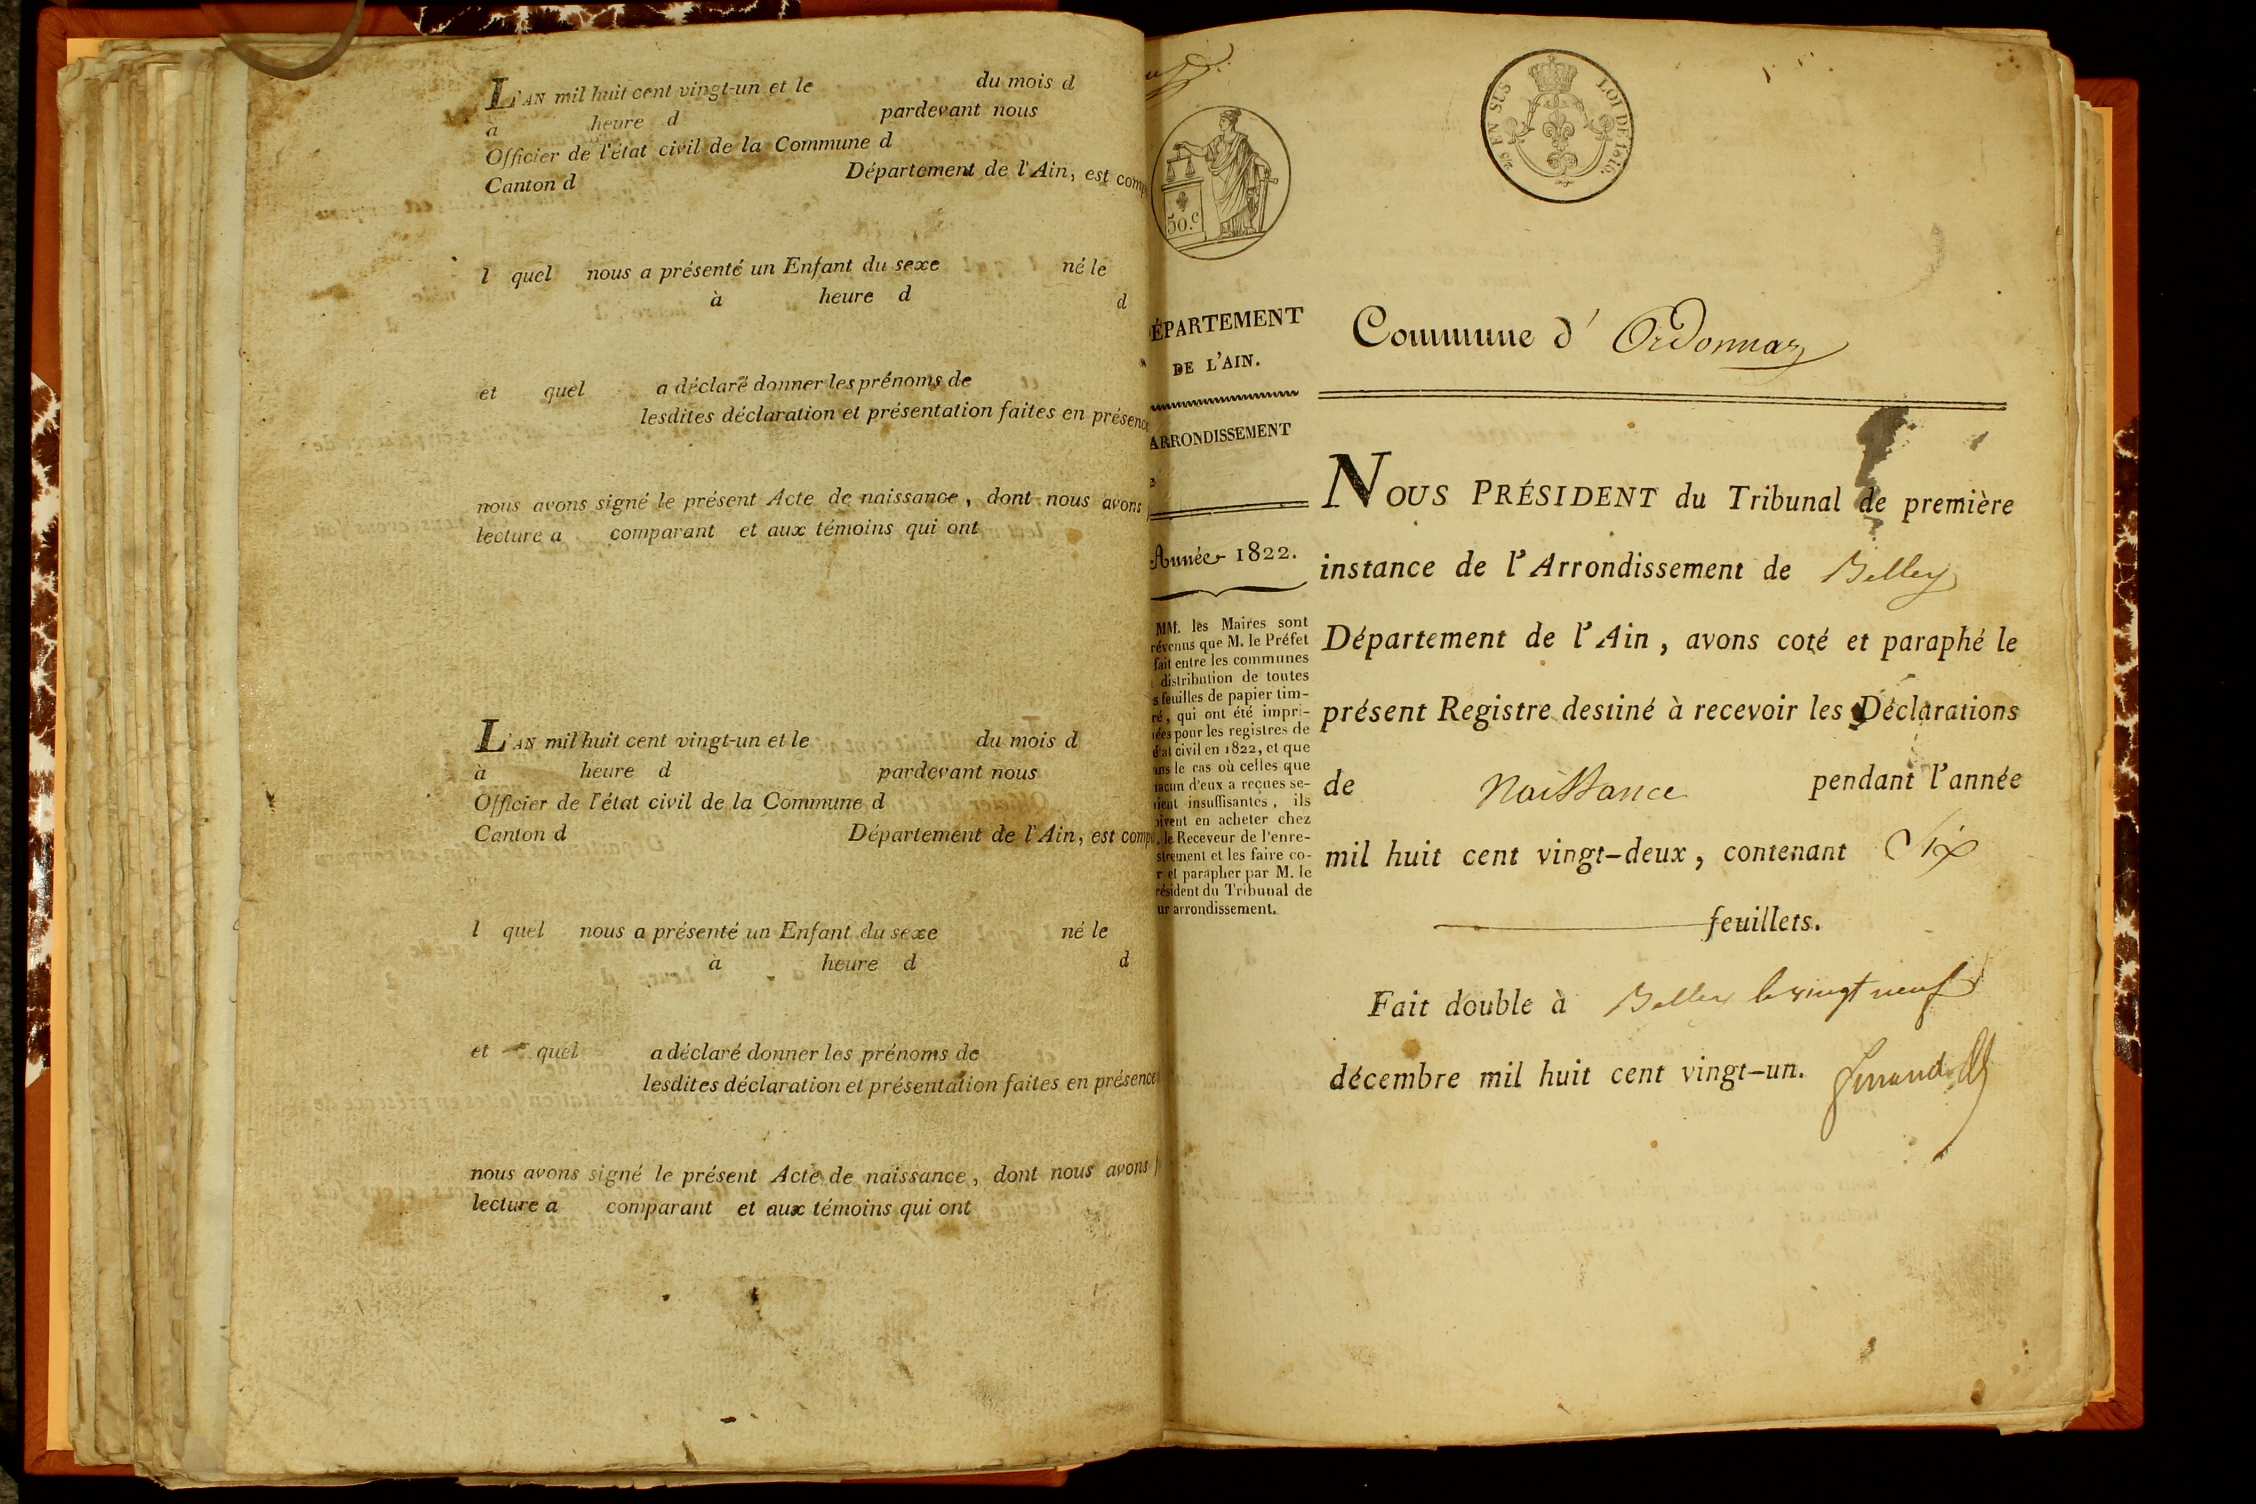 L'AN mil huit cent vingt-un et le du mois d
à heure d pardevant nous
Officier de l'état civil de la Commune d
Canton d Département de l'Ain, est comp
l quel nous a présenté un Enfant du sexe né le
à heure d d
et quel a déclaré donner les prénoms de
lesdites déclaration et présentation faites en présence
nous avons signé le présent Acte de naissance, dont nous avons
lecture a comparant et aux témoins qui ont
L'AN mil huit cent vingt-un et le du mois d
à heure d pardevant nous
Officier de l'état civil de la Commune d
Canton d Département de l'Ain, est comp
l quel nous a présenté un Enfant du sexe né le
à heure d d
et quel a déclaré donner les prénoms de
lesdites déclaration et présentation faites en présence
nous avons signé le présent Acte de naissance, dont nous avons
lecture a comparant et aux témoins qui ont
50.c
25 EN SUS LOI DE 1816.
ÉPARTEMENT
DE L'AIN.
ARRONDISSEMENT
Année 1822.
MM. les Maires sont
révenus que M. le Préfet
fait entre les communes
distribution de toutes
s feuilles de papier tim-
ré, qui ont été impri-
ées pour les registres de
état civil en 1822, et que
ans le cas où celles que
hacun d'eux a reçues se-
oient insuffisantes, ils
oivent en acheter chez
. le Receveur de l'enre-
strement et les faire co-
r et parapher par M. le
résident du Tribunal de
ur arrondissement.
Commune d' Ordonnaz
NOUS PRÉSIDENT du Tribunal de première
instance de l'Arrondissement de Belley
Département de l'Ain, avons coté et paraphé le
présent Registre destiné à recevoir les Déclarations
de Naissance pendant l'année
mil huit cent vingt-deux, contenant Six
feuillets.
Fait double à Belley le vingt neuf
décembre mil huit cent vingt-un.